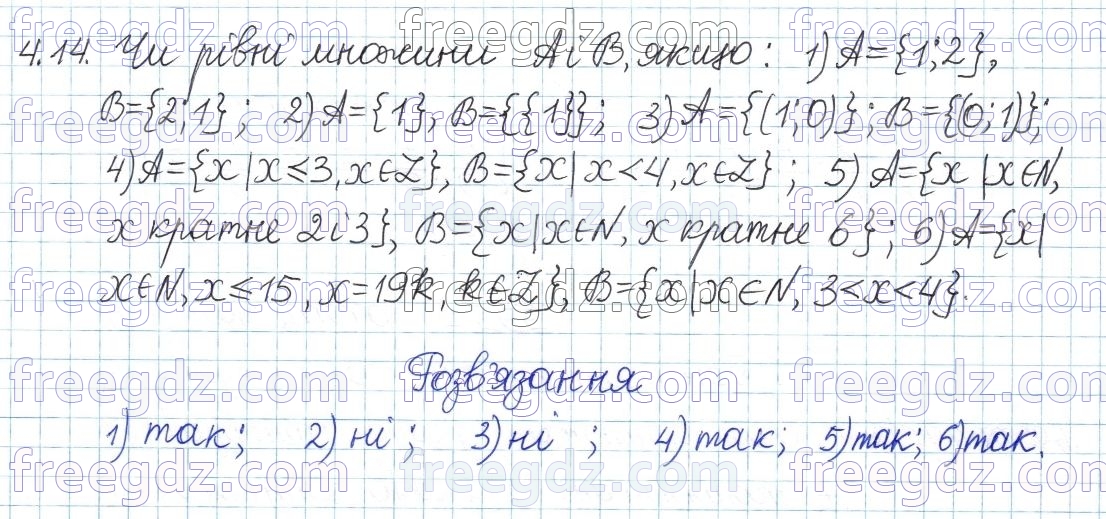 4.14. Чи рівні множини A і B, якщо: 1) A={1;2},
B={2;1}; 2) A={1}, B={{1}}; 3) A={(1;0)}; B={(0;1)};
4) A={x|x≤3, x∈Z}, B={x|x<4, x∈Z}; 5) A={x|x∈N,
x кратне 2 і 3}, B={x|x∈N, x кратне 6}; 6) A={x|
x∈N, x≤15, x=19k, k∈Z}, B={x|x∈N, 3<x<4}.
Розв'язання
1) так; 2) ні; 3) ні; 4) так; 5) так; 6) так.
freegdz.com